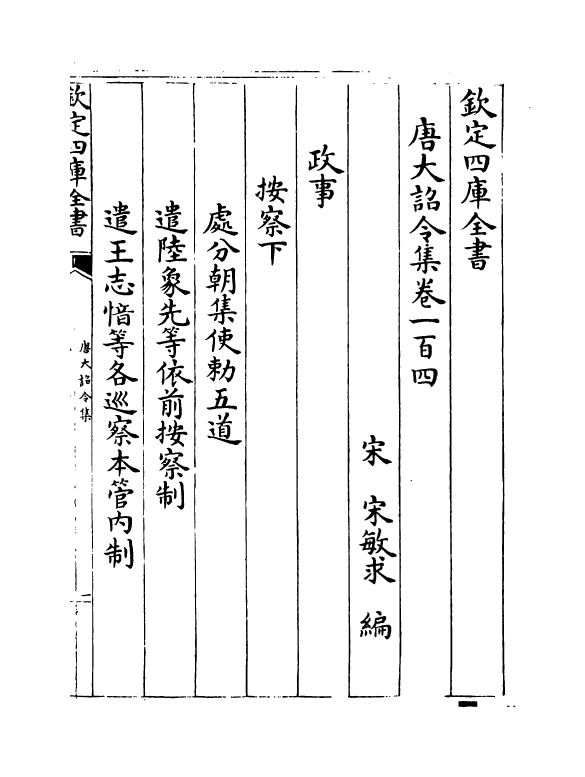 欽定四庫全書
唐大詔令集卷一百四
宋 宋敏求 編
政事
按察下
處分朝集使勅五道
遣陸象先等依前按察制
遣王志愔等各巡察本管內制
欽定四庫全書
唐大詔令集
一